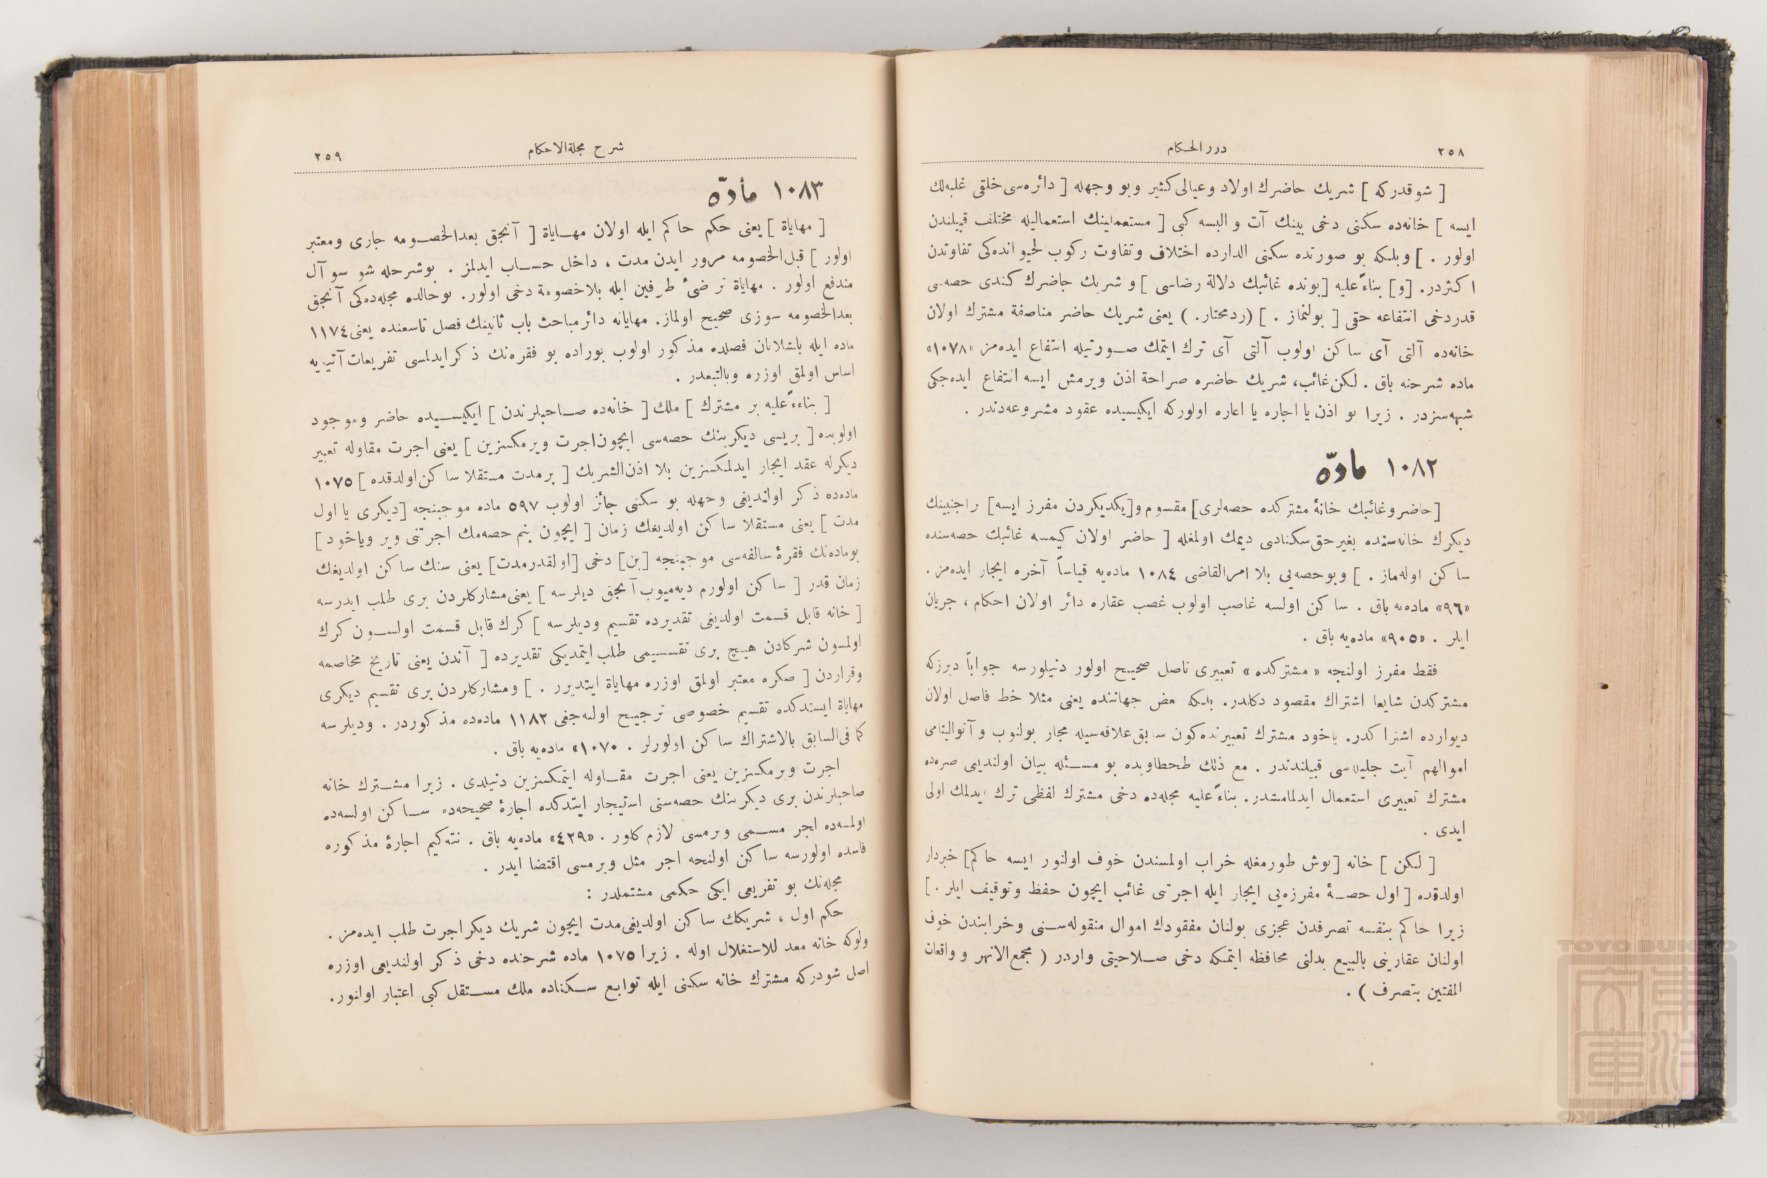 ٢٥٨
درر الحكام
[ شوقدركه ] شريك حاضرك اولاد وعيالى كثير وبو وجهله [ دائره‌سى خلقى غلبه‌لك
ايسه ] خانه‌ده سكنى دخى بينك آت و البسه كبى [ مستعملينك استعماليله مختلف قبيلندن
اولور . ] وبلكه بو صورتده سكنى الدارده اختلاف وتفاوت ركوب لحيواندەكى تفاوتدن
اكثردر. [و] بناءً عليه [بونده غائبك دلالة رضاسى ] و شريك حاضرك كندى حصه‌سى
قدردخى انتفاعه حقى [ بولنماز . ] (ردمحتار. ) يعنى شريك حاضر مناصفة مشترك اولان
خانه‌ده آلتى آى ساكن اولوب آلتى آى ترك ايتمك صورتيله انتفاع ايده‌مز «١٠٧٨»
ماده شرحنه باق . لكن غائب، شريك حاضره صراحة اذن ويرمش ايسه انتفاع ايده‌جكى
شبهه‌سزدر . زيرا بو اذن يا اجاره يا اعاره اولوركه ايكيسيده عقود مشروعه‌دندر .
١٠٨٢ مادّه
[حاضر وغائبك خانهٔ مشتركده حصه‌لرى] مقسوم و[يكديكردن مفرز ايسه] براجنبينك
ديكرك خانه‌سنده بغير حق سكناسى ديمك اولمغله [ حاضر اولان كيمسه غائبك حصه‌سنده
ساكن اوله‌ماز . ] وبوحصه‌يى بلا امرالقاضى ١٠٨٤ ماده‌يه قياساً آخره ايجار ايده‌مز .
«٩٦» ماده‌يه باق . ساكن اولسه غاصب اولوب غصب عقاره دائر اولان احكام ، جريان
ايلر . «٩٠٥» ماده‌يه باق .
فقط مفرز اولنجه « مشتركده » تعبيرى ناصل صحيح اولور دنيلورسه جواباً ديرزكه
مشتركدن شايعا اشتراك مقصود دكلدر. بلكه بعض جهاتنده يعنى مثلا خط فاصل اولان
ديوارده اشتراكدر. ياخود مشترك تعبيرنده‌كون سابق علاقه‌سيله مجاز بولنوب و آتوا اليتامى
اموالهم آيت جليله‌سى قبيلندندر . مع ذلك طحطاويده بو مسئله بيان اولنديغى صره‌ده
مشترك تعبيرى استعمال ايدلمامشدر. بناءً عليه مجله‌ده دخى مشترك لفظى ترك ايدلمك اولى
ايدى .
[ لكن ] خانه [بوش طورمغله خراب اولمسندن خوف اولنور ايسه حاكم] خبردار
اولدقده [ اول حصهٔ مفرزه‌يى ايجار ايله اجرتى غائب ايچون حفظ وتوقيف ايلر . ]
زيرا حاكم بنفسه تصرفدن عجزى بولنان مفقودك اموال منقوله‌سنى وخرابندن خوف
اولنان عقارينى بالبيع بدلنى محافظه ايتمكه دخى صلاحيتى واردر ( مجمع الانهر و واقعات
المفتين بتصرف ) .
شرح مجلة الاحكام
٢٥٩
١٠٨٣ مادّه
[ مهاياة ] يعنى حكم حاكم ايله اولان مهاياة [ آنجق بعدالخصومه جارى ومعتبر
اولور ] قبل الخصومه مرور ايدن مدت ، داخل حساب ايدلمز . بوشرحله شو سوآل
مندفع اولور . مهاياة تراضئ طرفين ايله بلا خصومة دخى اولور. بوحالده مجله‌ده‌كى آنجق
بعدالخصومه سوزى صحيح اولماز. مهاياته دائر مباحث باب ثانينك فصل تاسعنده يعنى ١١٧٤
ماده ايله باشلانان فصلده مذكور اولوب بوراده بو فقره‌نك ذكر ايدلمسى تفريعات آتيه‌يه
اساس اولمق اوزره وبالتبعدر .
[ بناءً عليه بر مشترك ] ملك [ خانه‌ده صاحبلرندن ] ايكيسيده حاضر وموجود
اولوبده [ بريسى ديكرينك حصه‌سى ايچون اجرت ويرمكسزين ] يعنى اجرت مقاوله تعبير
ديكرله عقد ايجار ايدلمكسزين بلا اذن الشريك [ بر مدت مستقلا ساكن اولدقده ] ١٠٧٥
ماده‌ده ذكر اولنديغى وجهله بو سكنى جائز اولوب ٥٩٧ ماده موجبنجه [ديكرى يا اول
مدت ] يعنى مستقلا ساكن اولديغك زمان [ ايچون بنم حصه‌مك اجرتنى وير وياخود ]
بوماده‌نك فقرهٔ سالفه‌سى موجبنجه [بن] دخى [اولقدر مدت] يعنى سنك ساكن اولديغك
زمان قدر [ ساكن اولورم ديه‌ميوب آنجق ديلرسه ] يعنى مشاركلردن برى طلب ايدرسه
[ خانه قابل قسمت اولديغى تقديرده تقسيم وديلرسه ] كرك قابل قسمت اولسون كرك
اولمسون شركادن هيچ برى تقسيمى طلب ايتمديكى تقديرده [ آندن يعنى تاريخ مخاصمه
وقراردن [ صكره معتبر اولمق اوزره مهاياة ايتديرر . ] ومشاركلردن برى تقسيم ديكرى
مهاياة ايستدكده تقسيم خصوصى ترجيح اولنه‌جغى ١١٨٢ ماده‌ده مذكوردر . وديلرسه
كما فى السابق بالاشتراك ساكن اولورلر . «١٠٧٠» ماده‌يه باق .
اجرت ويرمكسزين يعنى اجرت مقاوله ايتمكسزين دنيلدى . زيرا مشترك خانه
صاحبلرندن برى ديكرينك حصه‌سنى استيجار ايتدكده اجارهٔ صحيحه‌ده ساكن اولسه‌ده
اولمسه‌ده اجر مسمى ويرمسى لازم كلور . «٤٢٩» ماده‌يه باق . نته‌كيم اجارهٔ مذكوره
فاسده اولورسه ساكن اولنجه اجر مثل ويرمسى اقتضا ايدر .
مجله‌نك بو تفريعى ايكى حكمى مشتملدر :
حكم اول ، شريكك ساكن اولديغى مدت ايچون شريك ديكر اجرت طلب ايده‌مز .
ولوكه خانه معد للاستغلال اوله . زيرا ١٠٧٥ ماده شرحنده دخى ذكر اولنديغى اوزره
اصل شودركه مشترك خانه سكنى ايله توابع سكناده ملك مستقل كبى اعتبار اولنور.
TOYO BUNKO